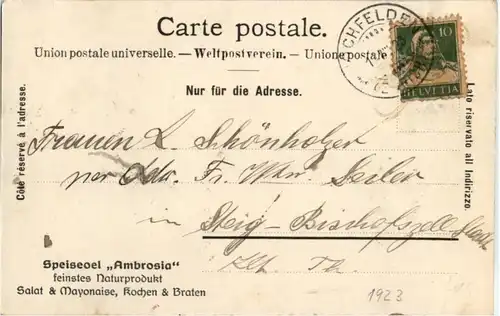 Carte postale.
Union postale universelle. — Weltpostverein. — Unione postale
CHFELDEN
10
HELVETIA
Nur für die Adresse.
Côté réservé à l'adresse.
Lato riservato all Indirizzo.
Frauen L. Schönholzer
per Adr. Fr. Wwr. Seiler
in Steig-Bischofszell Stadt
Kt. Th.
Speiseoel „Ambrosia"
feinstes Naturprodukt
Salat & Mayonaise, Kochen & Braten
1923